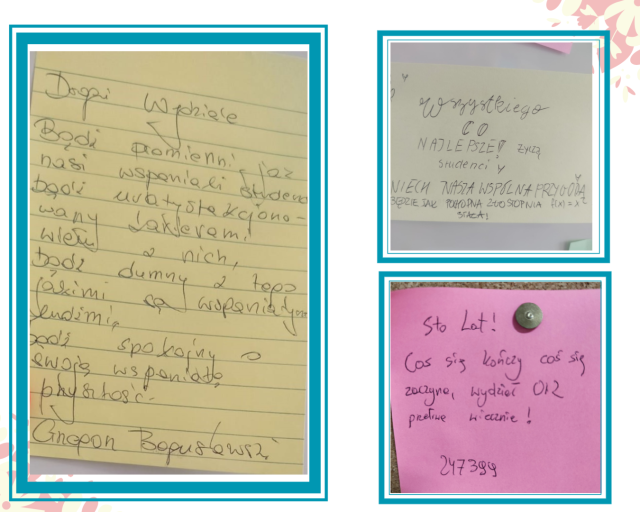 Drogi Wydziele
Bądź promienni jak
nasi wspaniali studenci
bądź
wany
wielu z nich,
bądź dumny z tego
jakimi są wspaniałymi
ludźmi,
bądź spokojny o
swoją wspaniałą
przyszłość.
Wszystkiego
CO
NAJLEPSZE życzą
studenci
NIECH NASZA WSPÓLNA PRZYGODA
BĘDZIE JAK POCHODNA 2 DO STOPNIA f(x)=x²
STAŁA!
Sto Lat!
Coś się kończy coś się
zaczyna, wydział
wiecznie!
247399